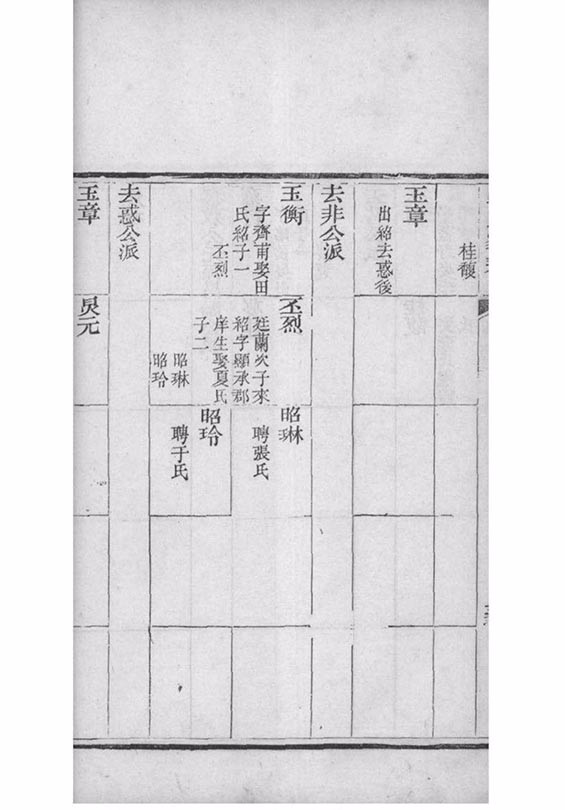 桂馥
玉章
出紹去惑後
去非公派
玉衡
字齊甫娶田
氏紹子一
丕烈
丕烈
廷蘭次子來
紹字顯承郡
庠生娶夏氏
子二
昭琳
昭玲
昭琳
聘張氏
昭玲
聘于氏
去惑公派
玉章
炅元